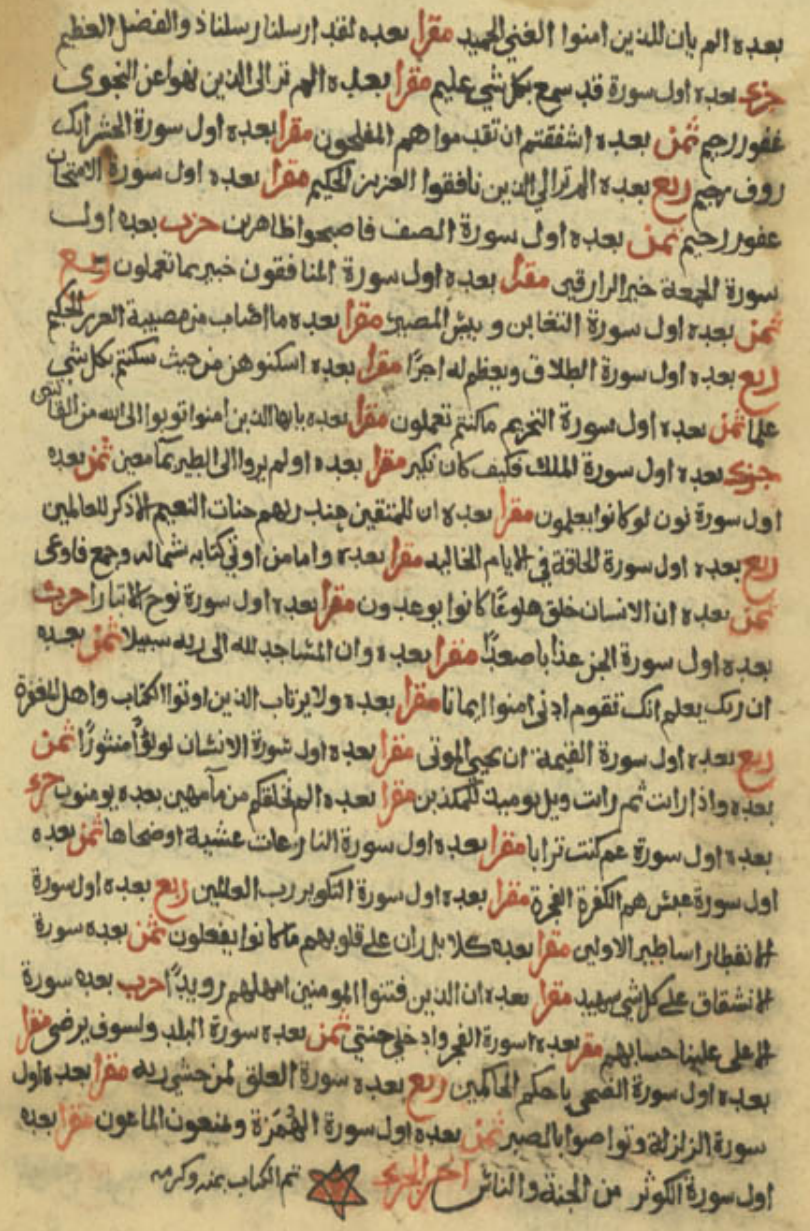 بعده الم يان للذين امنوا الغني الحميد مقرا بعده لقد ارسلنا رسلنا ذوالفضل العظيم
جزء بعده اول سورة قد سمع بكل شي عليم مقرا بعده الم تر الى الذين نهوا عن النجوى
غفور رحيم ثمن بعده اشفقتم ان تقدموا هم المفلحون مقرا بعده اول سورة الحشر انك
روف رحيم ربع بعده الم تر الي الذين نافقوا العزيز الحكيم مقرا بعده اول سورة الامتحان
غفور رحيم ثمن بعده اول سورة الصف فاصبحوا ظاهرين حزب بعده اول
سورة الجمعة خير الرازقين مقرا بعده اول سورة المنافقون خبير بما تعملون ربع
ثمن بعده اول سورة التغابن وبئس المصير مقرا بعده ما اصاب من مصيبة العزيز الحكيم
ربع بعده اول سورة الطلاق ويعظم له اجرًا مقرا بعده اسكنوهن من حيث سكنتم بكل شي
علما ثمن بعده اول سورة التحريم ما كنتم تعملون مقرا بعده يايها الذين امنوا توبوا الى الله من القانتين
جزء بعده اول سورة الملك فكيف كان نكير مقرا بعده اولم يروا الى الطير بمآ معين ثمن بعده
اول سورة نون لو كانوا يعلمون مقرا بعده ان للمتقين عند ربهم جنات النعيم الا ذكر للعالمين
ربع بعده اول سورة الحاقة في الايام الخاليه مقرا بعده واما من اوتي كتابه بشماله وجمع فاوعى
ثمن بعده ان الانسان خلق هلوعًا كانوا يوعدون مقرا بعده اول سورة نوح الا تبارا حزب
بعده اول سورة الجن عذابا صعدًا مقرا بعده وان المساجد لله الى ربه سبيلا ثمن بعده
ان ربك يعلم انك تقوم ادنى امنوا ايمانا مقرا بعده ولا يرتاب الذين اوتوا الكتاب واهل المغفرة
ربع بعده اول سورة القيمة ان يحيي الموتى مقرا بعده اول سورة الانسان لولؤًا منثورًا ثمن
بعده واذا رات ثم رات ويل يوميذ للمكذبين مقرا بعده الم نخلقكم من مآ مهين بعده يومنون جزء
بعده اول سورة عم كنت ترابا مقرا بعده اول سورة النازعات عشية او ضحاها ثمن بعده
اول سورة عبس هم الكفرة الفجرة مقرا بعده اول سورة التكوير رب العالمين ربع بعده اول سورة
الانفطار اساطير الاولين مقرا بعده كلا بل ران على قلوبهم ما كانوا يفعلون ثمن بعده سورة
الانشقاق على كل شي شهيد مقرا بعده ان الذين فتنوا المومنين امهلهم رويدًا حزب بعده سورة
الاعلى علينا حسابهم مقر بعده سورة الفجر وادخلي جنتي ثمن بعده سورة البلد ولسوف يرضى مقرا
بعده اول سورة الضحى باحكم الحاكمين ربع بعده سورة العلق لمن خشي ربه مقرا بعده اول
سورة الزلزلة وتواصوا بالصبر ثمن بعده اول سورة الهُمَزة ويمنعون الماعون مقرا بعده
اول سورة الكوثر من الجنة والناس اخر الجزء تم الكتاب بمنه وكرمه